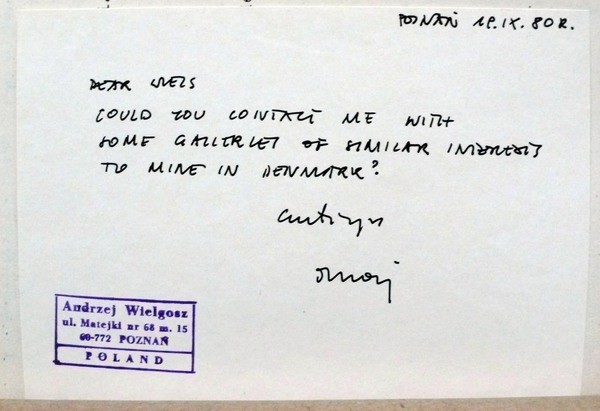 POZNAŃ 19.IX.80 R.
DEAR NIELS
COULD YOU CONTACT ME WITH
SOME GALLERIES OF SIMILAR INTERESTS
TO MINE IN DENMARK?
Andrzej Wielgosz
ul. Matejki nr 68 m. 15
60-772 POZNAŃ
POLAND